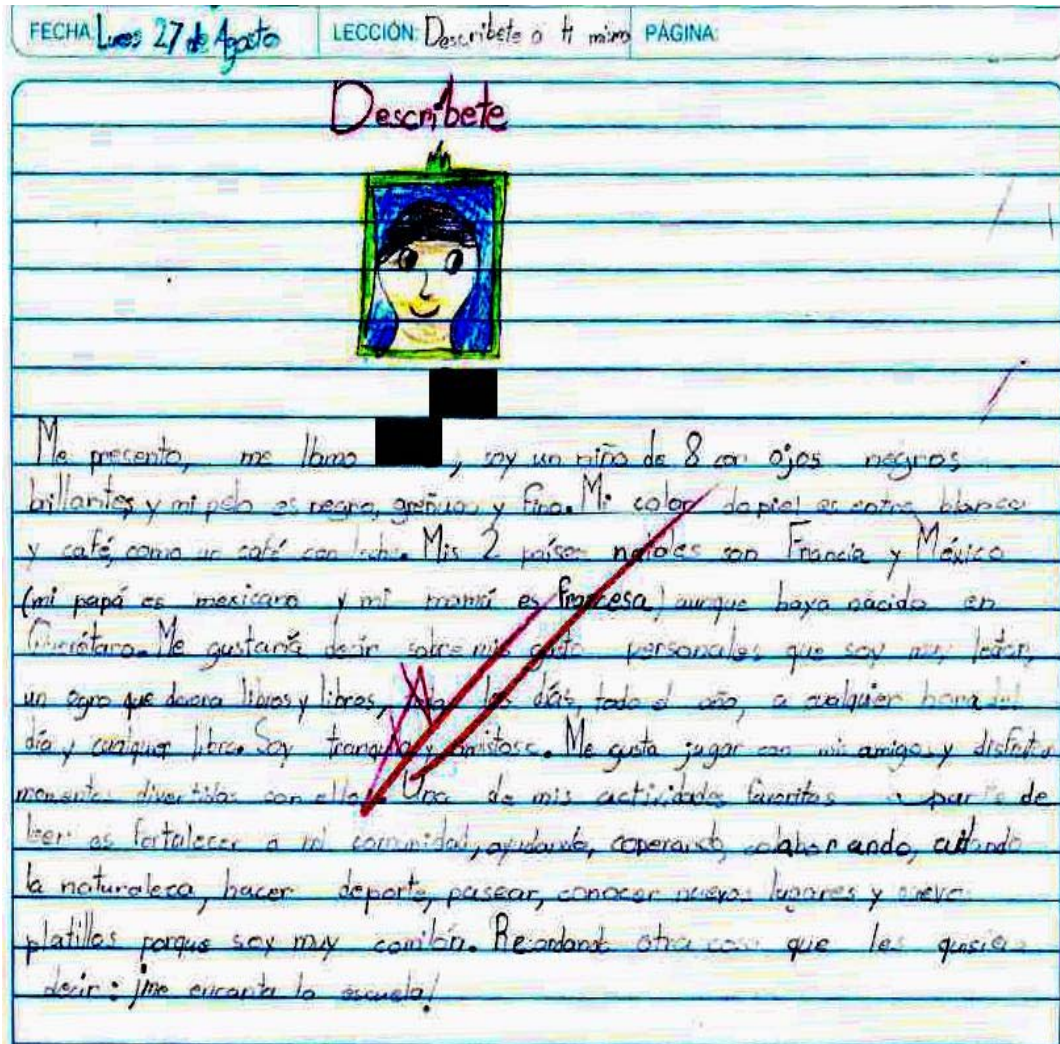 FECHA: Lunes 27 de Agosto LECCIÓN: Describete a ti mismo PÁGINA:
Descríbete
Me presento, me llamo , soy un niño de 8 con ojos negros
brillantes y mi pelo es negro, greñudo y fino. Mi color de piel es entre blanco
y café, como un café con leche. Mis 2 países natales son Francia y México
(mi papá es mexicano y mi mamá es francesa) aunque haya nacido en
Querétaro. Me gustaría decir sobre mis gusto personales que soy muy lector,
un ogro que devora libros y libros, los días, todo el año, a cualquier hora del
día y cualquier libro. Soy tranquilo y amistoso. Me gusta jugar con mis amigos y disfrutar
momentos divertidos con ellos. Una de mis actividades favoritas aparte de
leer es fortalecer a mi comunidad, ayudando, coperando, colaborando, cuidando
la naturaleza, hacer deporte, pasear, conocer nuevos lugares y nuevos
platillos porque soy muy comilón. Recordando otra cosa que les quisiera
decir: ¡me encanta la escuela!